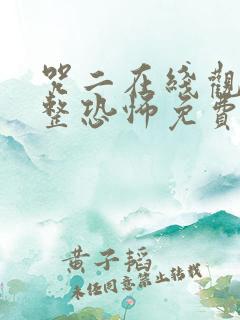 咒二在线觀
整恐怖免費
黄子韬
未经同意禁止转载